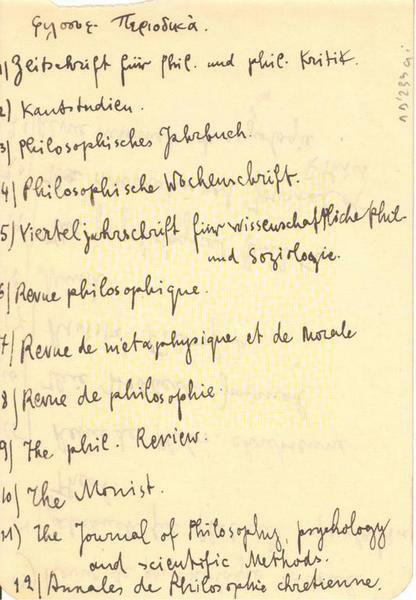 Φιλοσοφ. Περιοδικά.
1) Zeitschrift für phil. und phil. Kritik.
2) Kantstudien.
3) Philosophisches Jahrbuch.
4) Philosophische Wochenschrift.
5) Vierteljahrsschrift für wissenschaftliche phil.
und Soziologie.
6) Revue philosophique.
7) Revue de métaphysique et de Morale
8) Revue de philosophie.
9) The phil. Review.
10) The Monist.
11) The Journal of Philosophy, psychology
and scientific Methods.
12) Annales de Philosophie chrétienne.